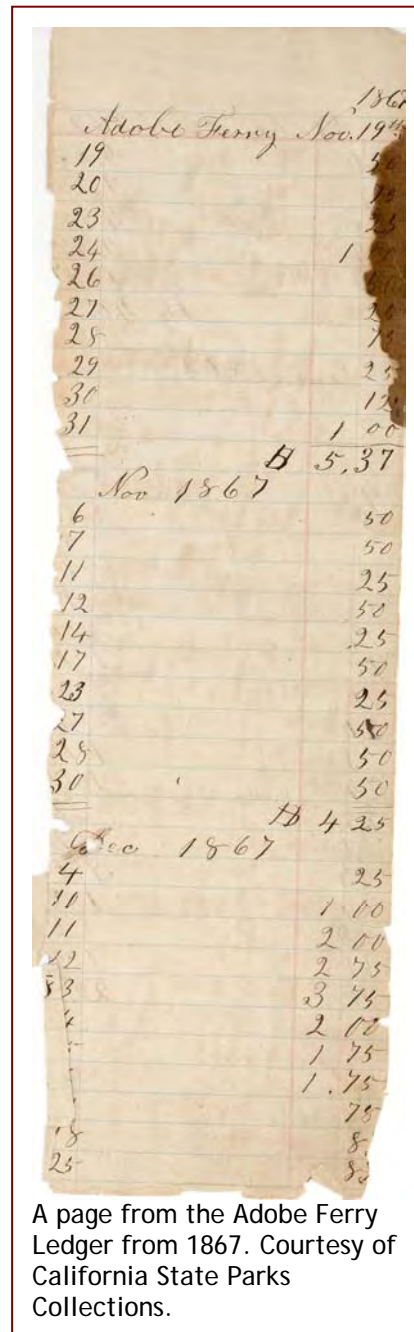 1867
Adobe Ferry Nov. 19th
19 50
20 75
23 25
24 1
26
27 25
28 75
29 25
30 12
31 1 00
$ 5.37
Nov 1867
6 50
7 50
11 25
12 50
14 25
17 50
23 25
27 50
28 50
30 50
$ 4 25
Dec 1867
4 25
10 1 00
11 2 00
12 2 75
3 3 75
4 2 00
1 75
1.75
75
8 8
25 8
A page from the Adobe Ferry
Ledger from 1867. Courtesy of
California State Parks
Collections.